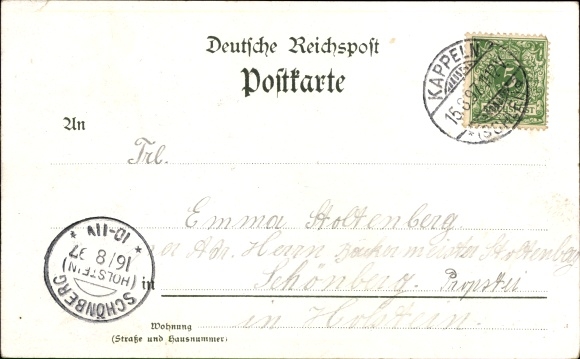 Deutsche Reichspost
Postkarte
KAPPELN
15.8.97
(SCHLEI)
5
An
Frl.
Emma Stoltenberg
per Adr. Herrn Bäckermeister Stoltenberg
in Schönberg. Propstei
in Holstein.
SCHÖNBERG
(HOLSTEIN)
16/8 97
* 10-11V *
Wohnung
(Straße und Hausnummer)